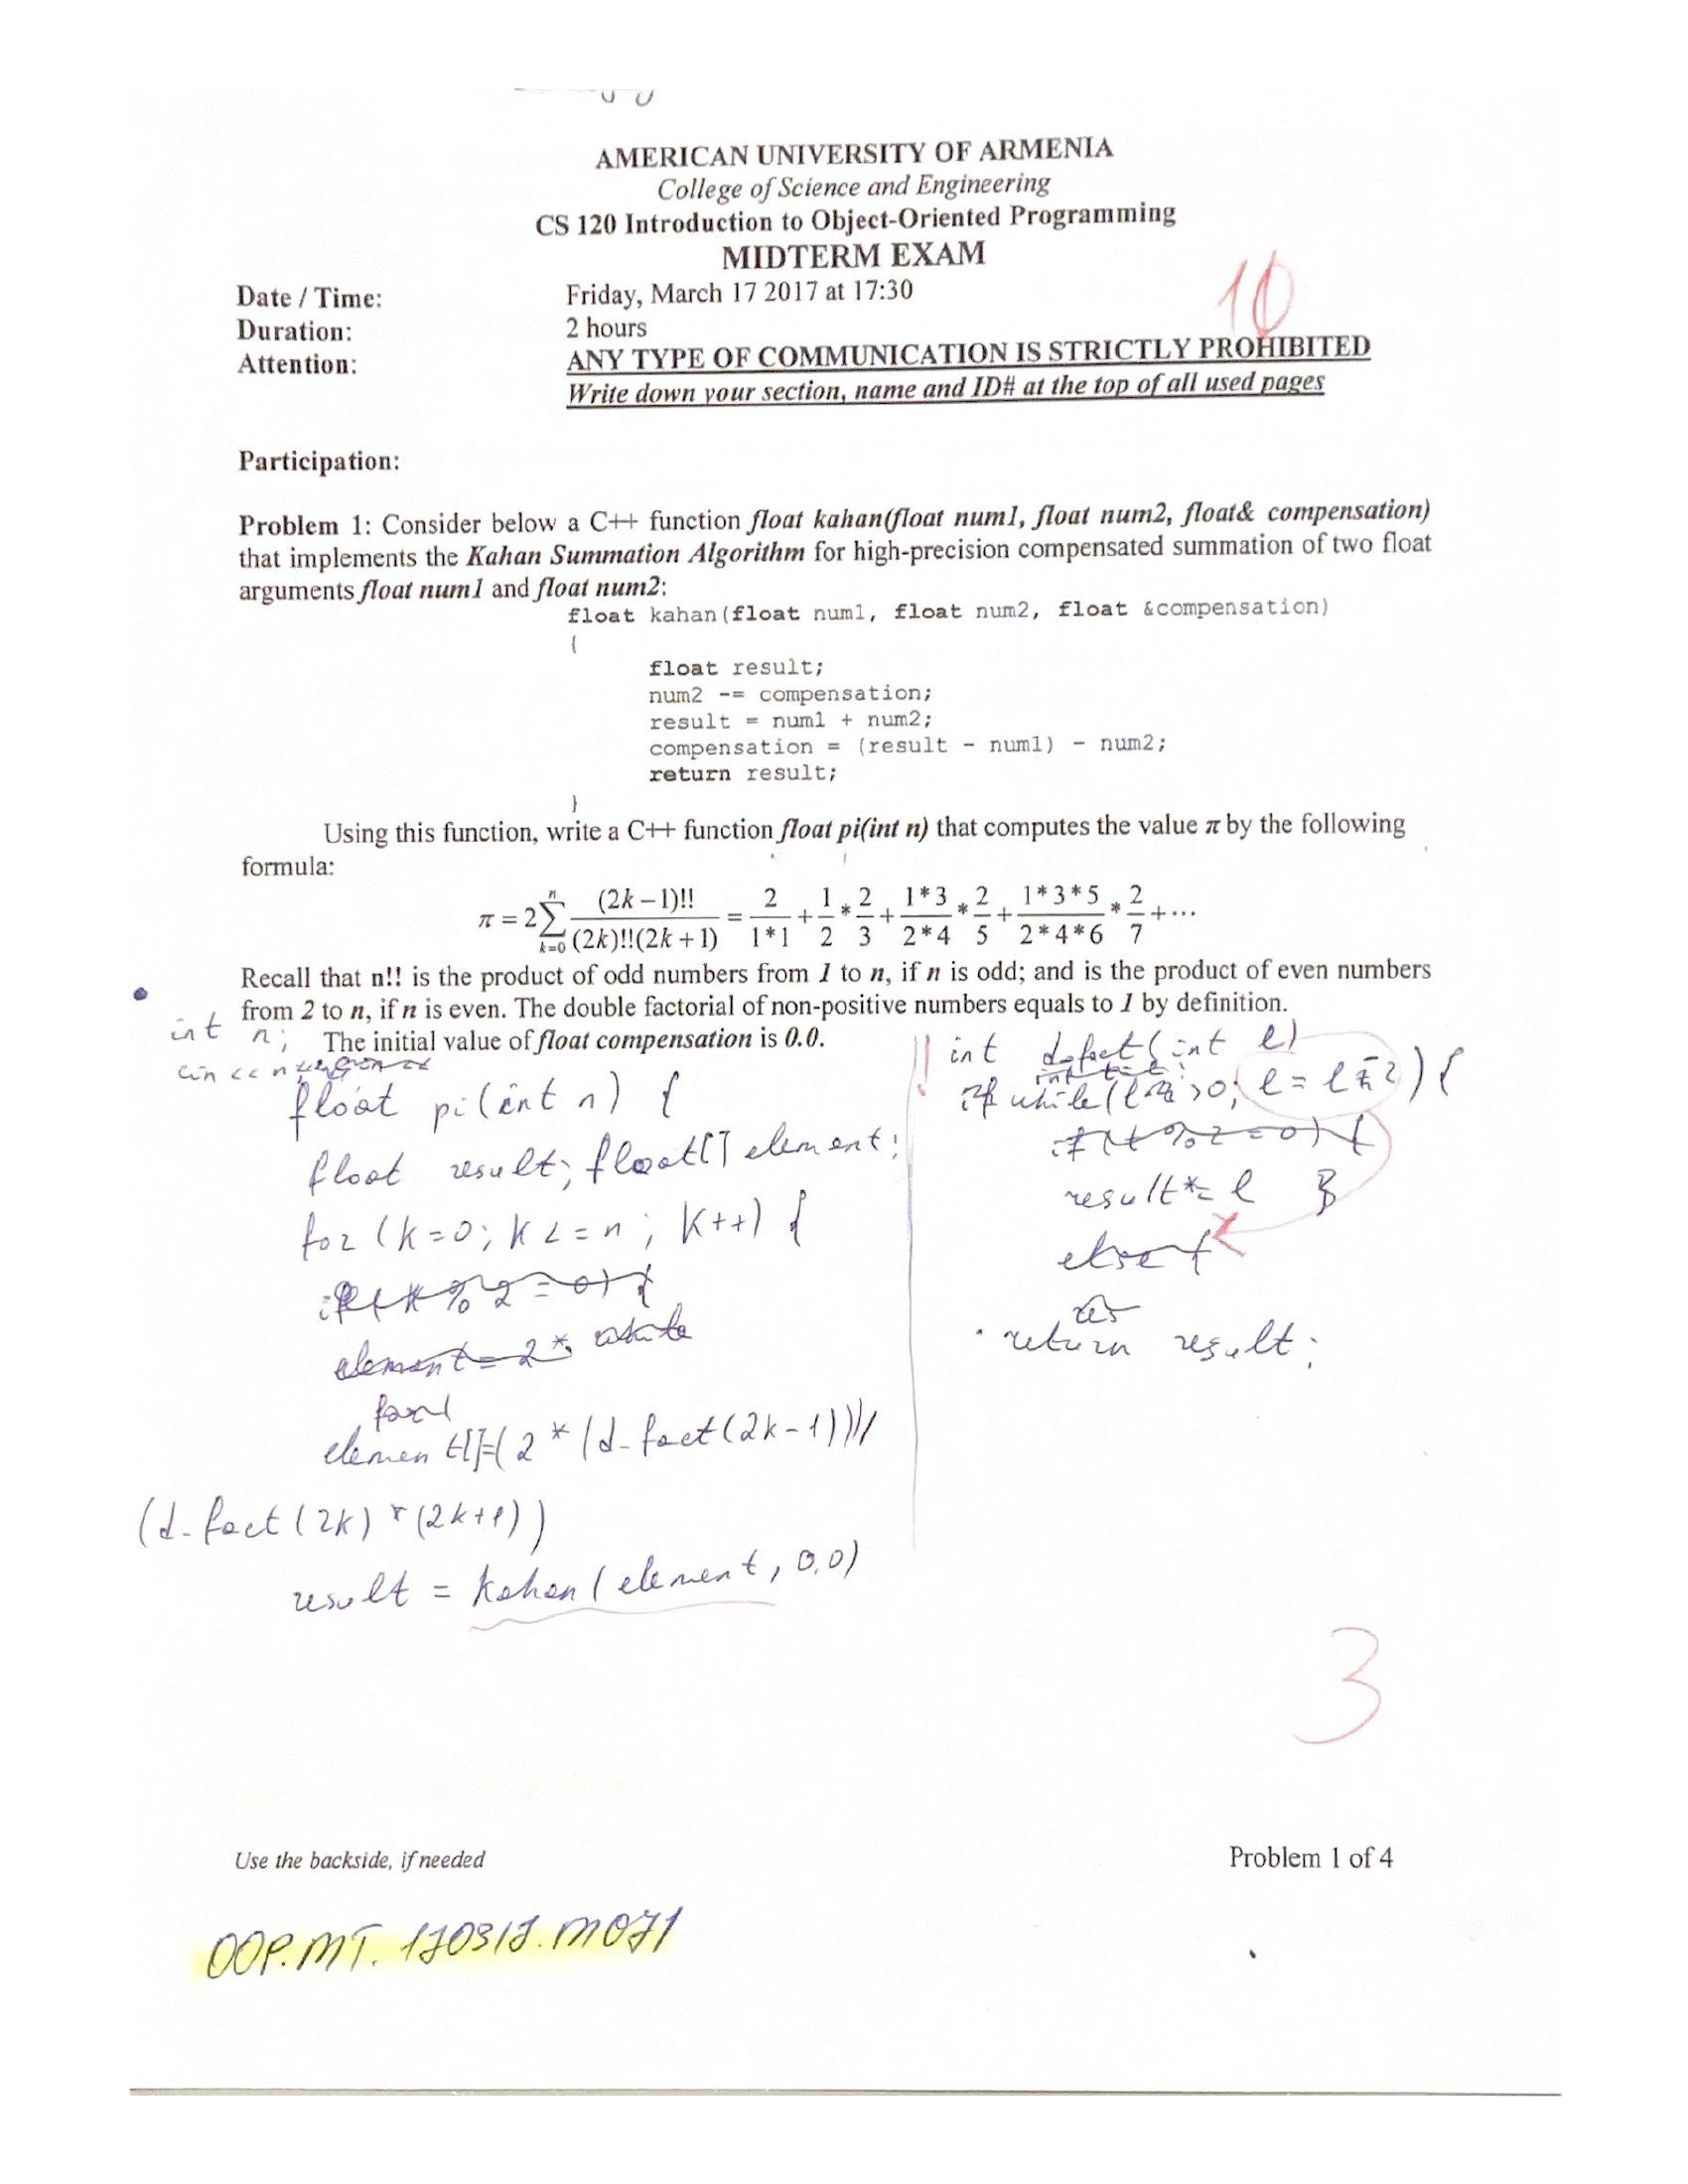 AMERICAN UNIVERSITY OF ARMENIA
College of Science and Engineering
CS 120 Introduction to Object-Oriented Programming
MIDTERM EXAM
10
Date / Time: Friday, March 17 2017 at 17:30
Duration: 2 hours
Attention: ANY TYPE OF COMMUNICATION IS STRICTLY PROHIBITED
Write down your section, name and ID# at the top of all used pages
Participation:
Problem 1: Consider below a C++ function float kahan(float num1, float num2, float& compensation)
that implements the Kahan Summation Algorithm for high-precision compensated summation of two float
arguments float num1 and float num2:
float kahan(float num1, float num2, float &compensation)
{
float result;
num2 -= compensation;
result = num1 + num2;
compensation = (result - num1) - num2;
return result;
}
Using this function, write a C++ function float pi(int n) that computes the value π by the following
formula:
π = 2 ∑_{k=0}^{n} (2k-1)!! / (2k)!!(2k+1) = 2/1*1 + 1/2 * 2/3 + 1*3/2*4 * 2/5 + 1*3*5/2*4*6 * 2/7 + ···
Recall that n!! is the product of odd numbers from 1 to n, if n is odd; and is the product of even numbers
from 2 to n, if n is even. The double factorial of non-positive numbers equals to 1 by definition.
The initial value of float compensation is 0.0.
int n;
cin << n
float pi(int n) {
float result; float[] element;
for (k=0; k<=n; k++) {
if (k%2=0) {
element = 2* while
element[]=(2*(d-fact(2k-1)))/
(d-fact(2k)*(2k+1))
result = kahan(element, 0,0)
int d-fact(int l)
if while(l >0; l=l-2) {
if (t%2=0) {
result*=l }
else {
res
return result;
3
Use the backside, if needed
Problem 1 of 4
OOP.MT.170317.M071